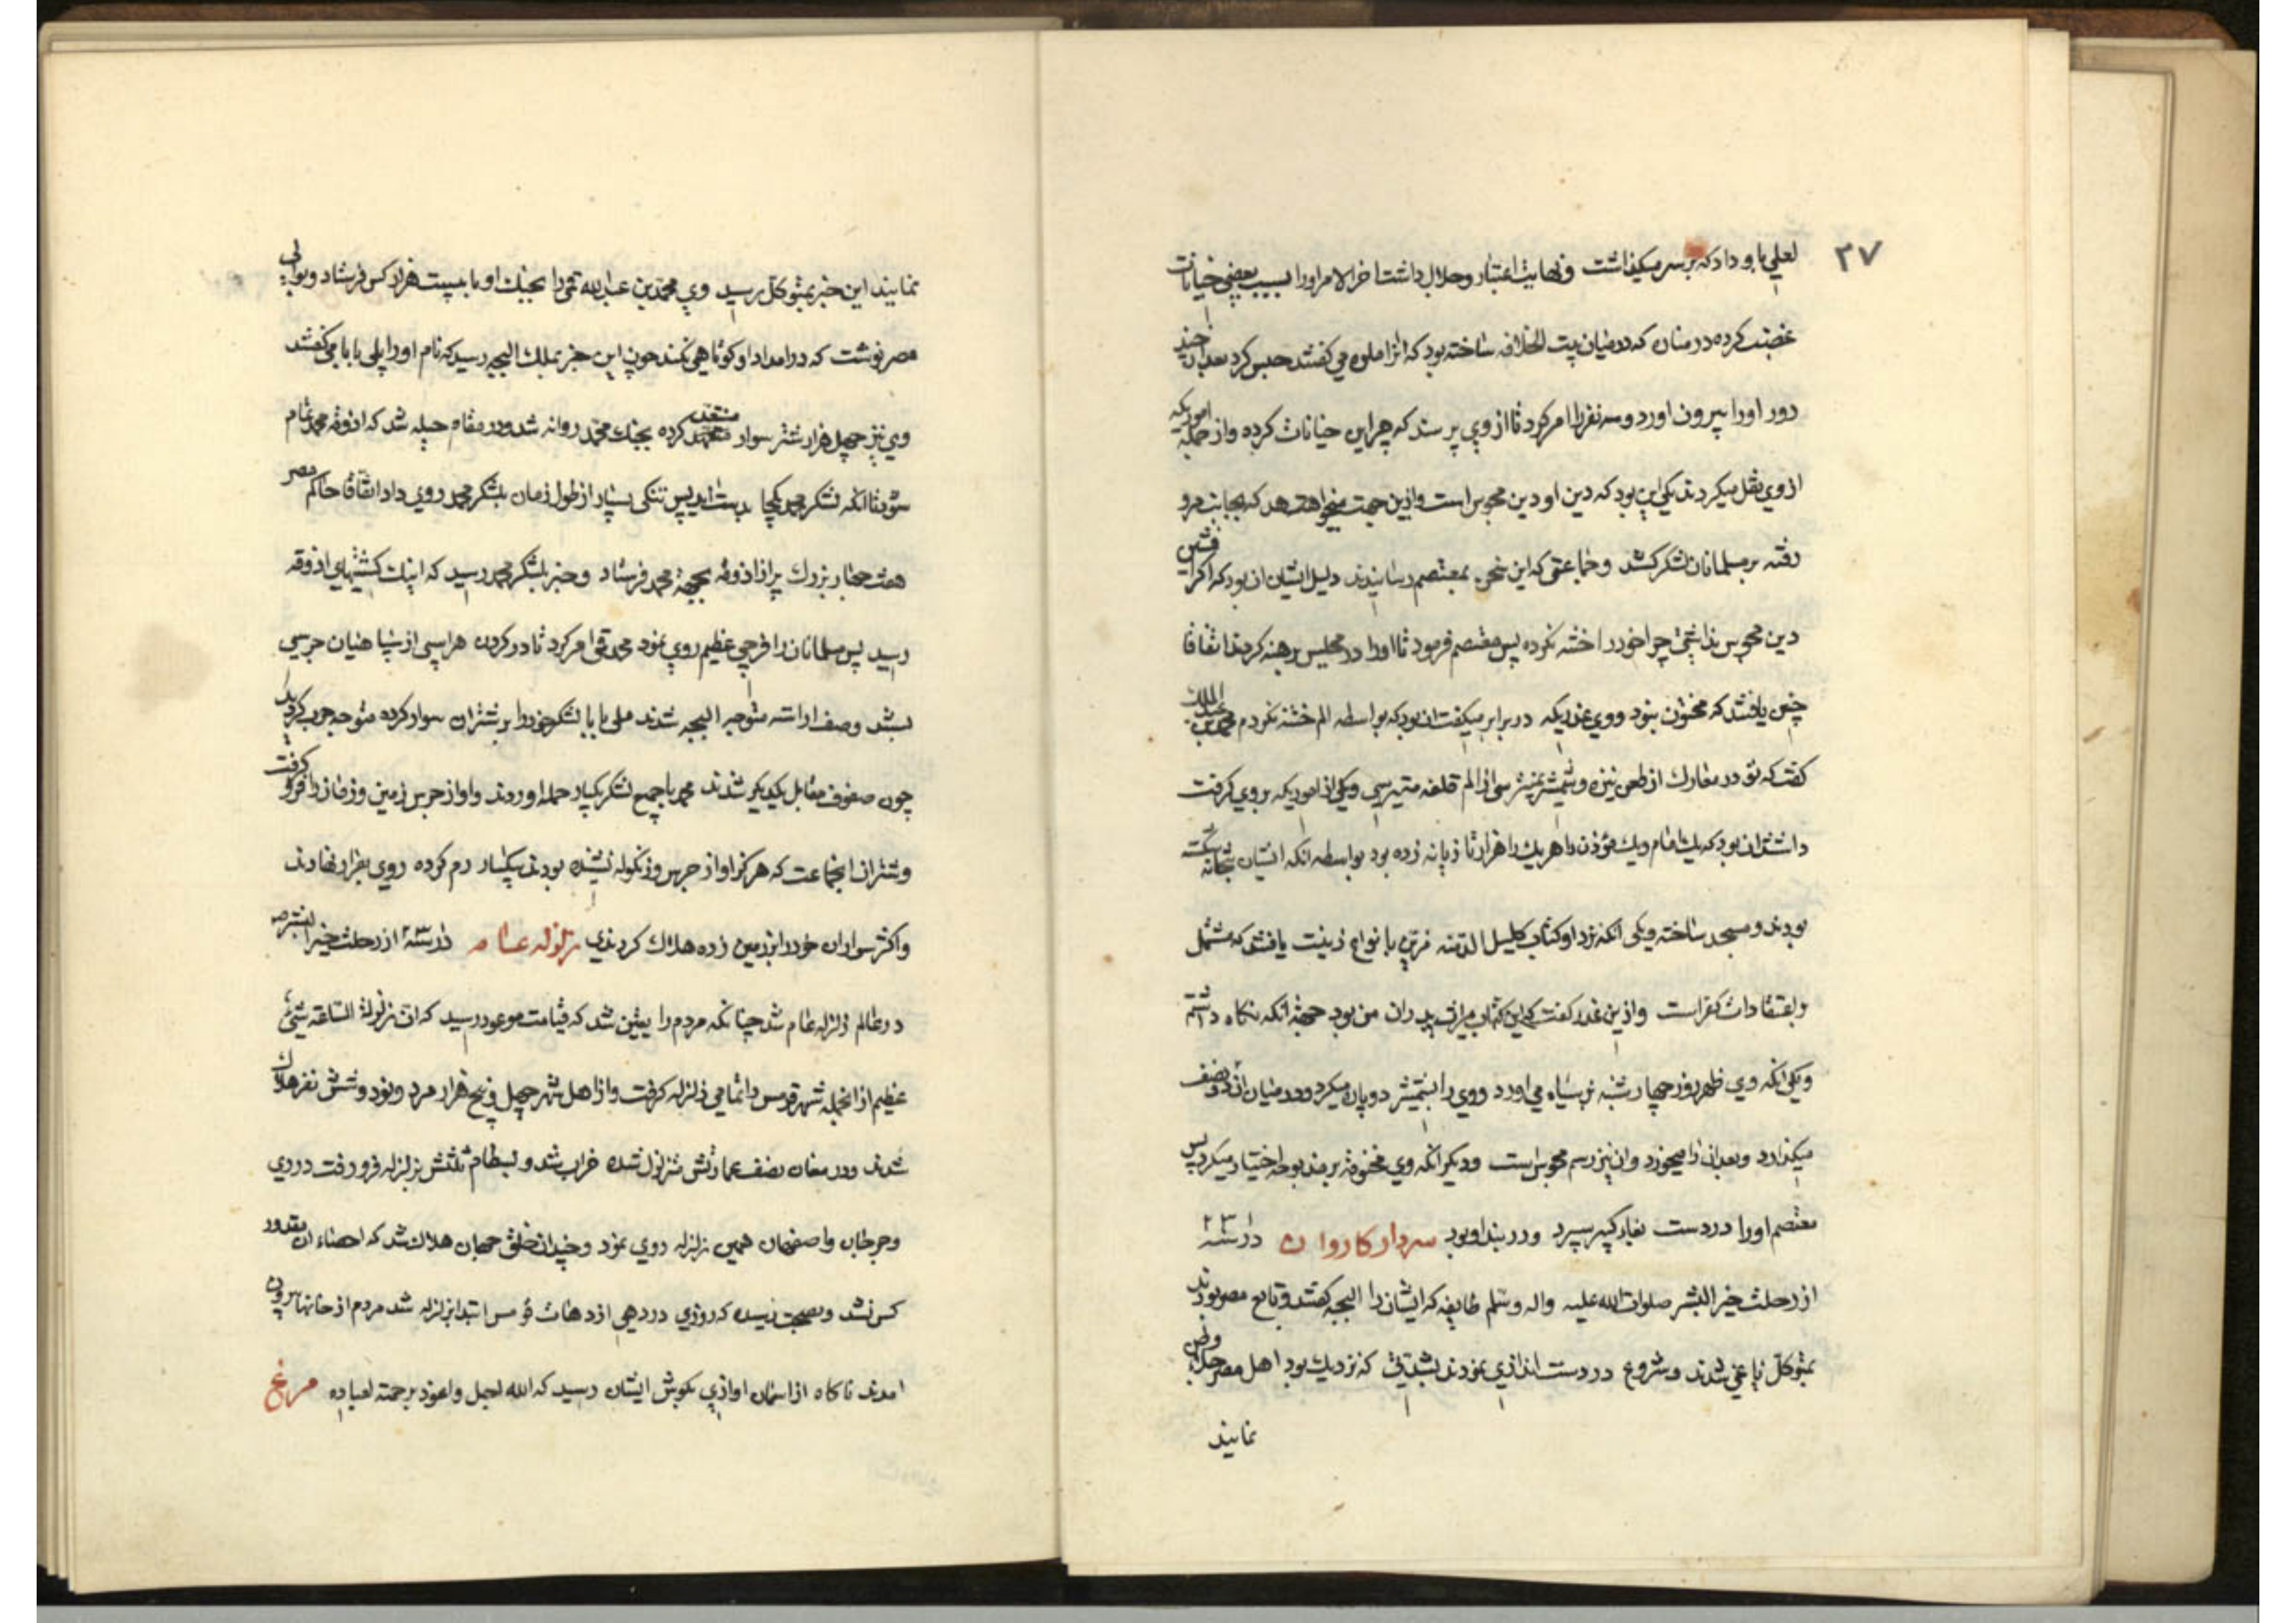 ۲۷
لعلی باو داد که بر سر میگذاشت و نهایت اعتبار و جلال داشت اخر الامر او را بسبب بعضی خیانات
غضب کرده در منان که در میان بیت الخلافه ساخته بود که انرا ملوه می کفتند حبس کرد بعد از چند
روز او را بیرون اورد و سه نفر را امر کرد تا از وی پرسند که چرا این خیانات کرده و از جمله اموریکه
از وی نقل میکردند یکی این بود که دین او دین مجوس است و ازین جهت میخواهد که بجانب مرو
رفته بر مسلمانان لشکر کشد و جماعتی که این سخن بمعتصم رسانیدند دلیل ایشان ان بود که اکر افشین
دین مجوس نداشتی چرا خود را ختنه نکرده پس معتصم فرمود تا او را در مجلس برهنه کردند اتفاقا
چنین یافتند که مختون نبود و وی عذریکه در برابر میکفت ان بود که بواسطه الم ختنه نکردم محمد بن عبد الملک
کفت که تو در معارک از طعن نیزه و شمشیر نمیترسی از الم قلفه میترسی و یکی از اموریکه بر وی کرفت
داشتند ان بود که یک امام و یک مؤذن را هر یک را هزار تازیانه زده بود بواسطه انکه ایشان بتخانه شکسته
بودند و مسجد ساخته و یکی انکه نزد او کتاب کلیل الدمنه مزین بانواع زینت یافتند که مشتمل
بر اعتقادات کفر است و ازین عذر کفت که این کتاب میراث پدران من بود جهة انکه نکاه داشتم
و یکی انکه وی ظهر روز چهار شنبه بز سیاه می اورد و وی را بشمشیر دو پاره میکرد و در میان ان دو نصف
میکذارد و بعد از ان را میخورد و ان نیز رسم مجوس است و دیکر انکه وی مخنوقه بر مذبوحه اختیار میکرد پس
معتصم او را در دست بغا کبیر سپرد و در بند او بود سردار کاروان در سنه ۲۳۱
از رحلت خیر البشر صلوات الله علیه واله وسلم طایفه که ایشان را البجه کفتند و تابع مصر بودند
بمتوکل یاغی شدند و شروع در دست اندازی نمودند بشدتی که نزدیک بود اهل مصر جلای وطن
نمایند
نمایند این خبر بمتوکل رسید وی محمد بن عبد الله قمی را بجنک او با بیست هزار کس فرستاد و بوالی
مصر نوشت که در امداد او کوتاهی نکند چون این خبر بملک البجه رسید که نام او را علی بابا می کفتند
وی نیز چهل هزار شتر سوار مستعد کرده بجنک محمد روانه شد و در مقام حیله شد که اذوقه محمد تمام
شود تا انکه لشکر محمد یکجا بدست اید پس تنکی بسیار از طول زمان بلشکر محمد روی داد اتفاقا حاکم مصر
هفت جهاز بزرک پر از اذوقه بجهة محمد فرستاد و خبر بلشکر محمد رسید که اینک کشتیهای اذوقه
رسید پس مسلمانان را فرحی عظیم روی نمود محمد قمی امر کرد تا در کردن هر اسپی از سپاهیان جرسی
بستند وصف اراسته متوجه البجه شدند علی بابا لشکر خود را بر شتران سوار کرده متوجه حرب کردید
چون صفوف مقابل یکدیکر شدند محمد با جمیع لشکر یکبار حمله اوردند و اواز جرس زمین و زمان را فرو کرفت
و شتران انجماعت که هرکز اواز جرس و زنکوله نشنیده بودند بیکبار رم کرده روی بفرار نهادند
و اکثر سواران خود را بر زمین زده هلاک کردندی زلزله عام در سنه ۲۳۰ از رحلت خیر البشر ص
در عالم زلزله عام شد چنانکه مردم را یقین شد که قیامت موعود رسید که ان زلزلة الساعة شیء
عظیم از انجمله شهر قومس را تمامی زلزله کرفت و از اهل شهر چهل و پنج هزار مرد و نود و شش نفر هلاک
شدند و در مغان نصف عمارتش متزلزل شده خراب شد و بسطام ثلثش بزلزله فرو رفت در ری
و جرجان و اصفهان همین زلزله روی نمود و چندان خلق جهان هلاک شد که احصاء ان مقدور
کس نشد و بصحت رسیده که روزی در دهی از دهات قومس ابتدا زلزله شد مردم از خانها بیرون
امدند ناکاه از اسمان اوازی بکوش ایشان رسید که الله اجل واعود برحمته لعباده مرغ